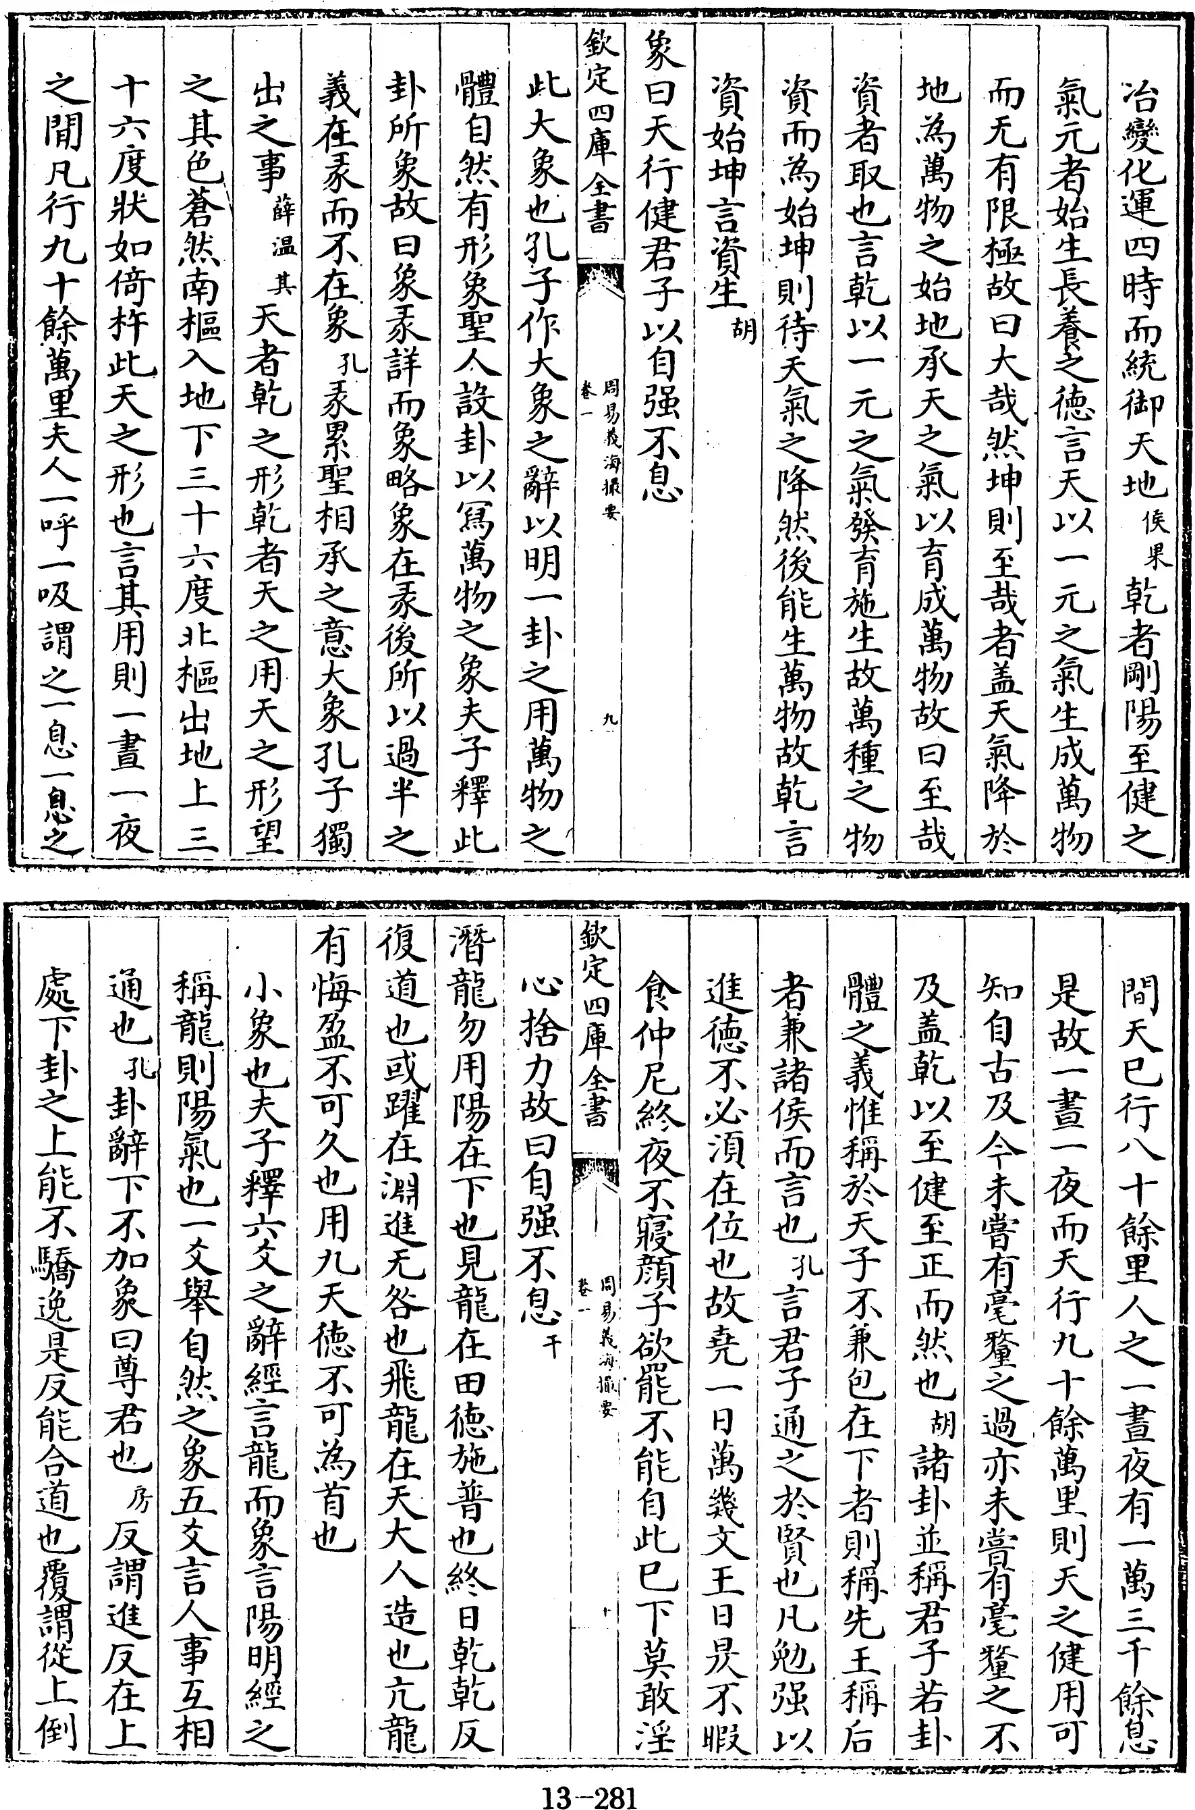 冶變化運四時而統御天地侯果乾者剛陽至健之
氣元者始生長養之德言天以一元之氣生成萬物
而无有限極故曰大哉然坤則至哉者盖天氣降於
地為萬物之始地承天之氣以育成萬物故曰至哉
資者取也言乾以一元之氣發育施生故萬種之物
資而為始坤則待天氣之降然後能生萬物故乾言
資始坤言資生胡
象曰天行健君子以自强不息
欽定四庫全書
周易義海撮要
卷一
九
此大象也孔子作大象之辭以明一卦之用萬物之
體自然有形象聖人設卦以冩萬物之象夫子釋此
卦所象故曰象彖詳而象略象在彖後所以過半之
義在彖而不在象孔彖累聖相承之意大象孔子獨
出之事薛溫其天者乾之形乾者天之用天之形望
之其色蒼然南樞入地下三十六度北樞出地上三
十六度狀如倚杵此天之形也言其用則一晝一夜
之間凡行九十餘萬里夫人一呼一吸謂之一息一息之
間天已行八十餘里人之一晝夜有一萬三千餘息
是故一晝一夜而天行九十餘萬里則天之健用可
知自古及今未嘗有毫釐之過亦未嘗有毫釐之不
及盖乾以至健至正而然也胡諸卦並稱君子若卦
體之義惟稱於天子不兼包在下者則稱先王稱后
者兼諸侯而言也孔言君子通之於賢也凡勉强以
進德不必須在位也故堯一日萬幾文王日昃不暇
食仲尼終夜不寢顔子欲罷不能自此已下莫敢淫
欽定四庫全書
周易義海撮要
卷一
十
心捨力故曰自强不息干
潛龍勿用陽在下也見龍在田德施普也終日乾乾反
復道也或躍在淵進无咎也飛龍在天大人造也亢龍
有悔盈不可久也用九天德不可為首也
小象也夫子釋六爻之辭經言龍而象言陽明經之
稱龍則陽氣也一爻舉自然之象五爻言人事互相
通也孔卦辭下不加象曰尊君也房反謂進反在上
處下卦之上能不驕逸是反能合道也覆謂從上倒
13-281